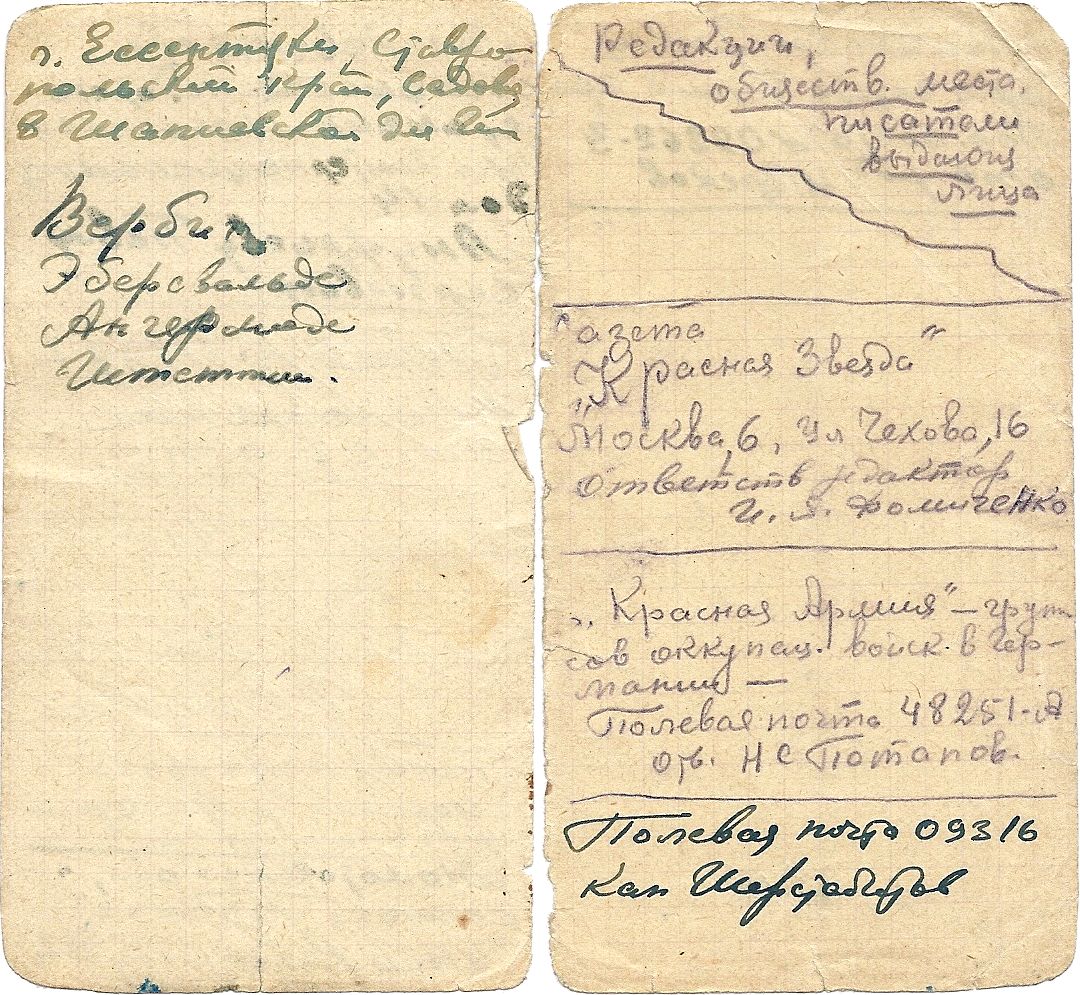 г. Ессентуки, Ставро
польский край, Садова
8
Верби
Эберсвальде
Ангермюде
Штеттин.
Редакции,
обществ. места,
писатели
выдающ
лица
Газета
"Красная Звезда"
Москва, 6, ул Чехова, 16
Ответств редактор
И. Я. Фомиченко
"Красная Армия" – груп
сов оккупац. войск. в Гер-
мании —
Полевая почта 48251-А
отв. Н С Потапов.
Полевая почта 09316
кап Шерстобитов